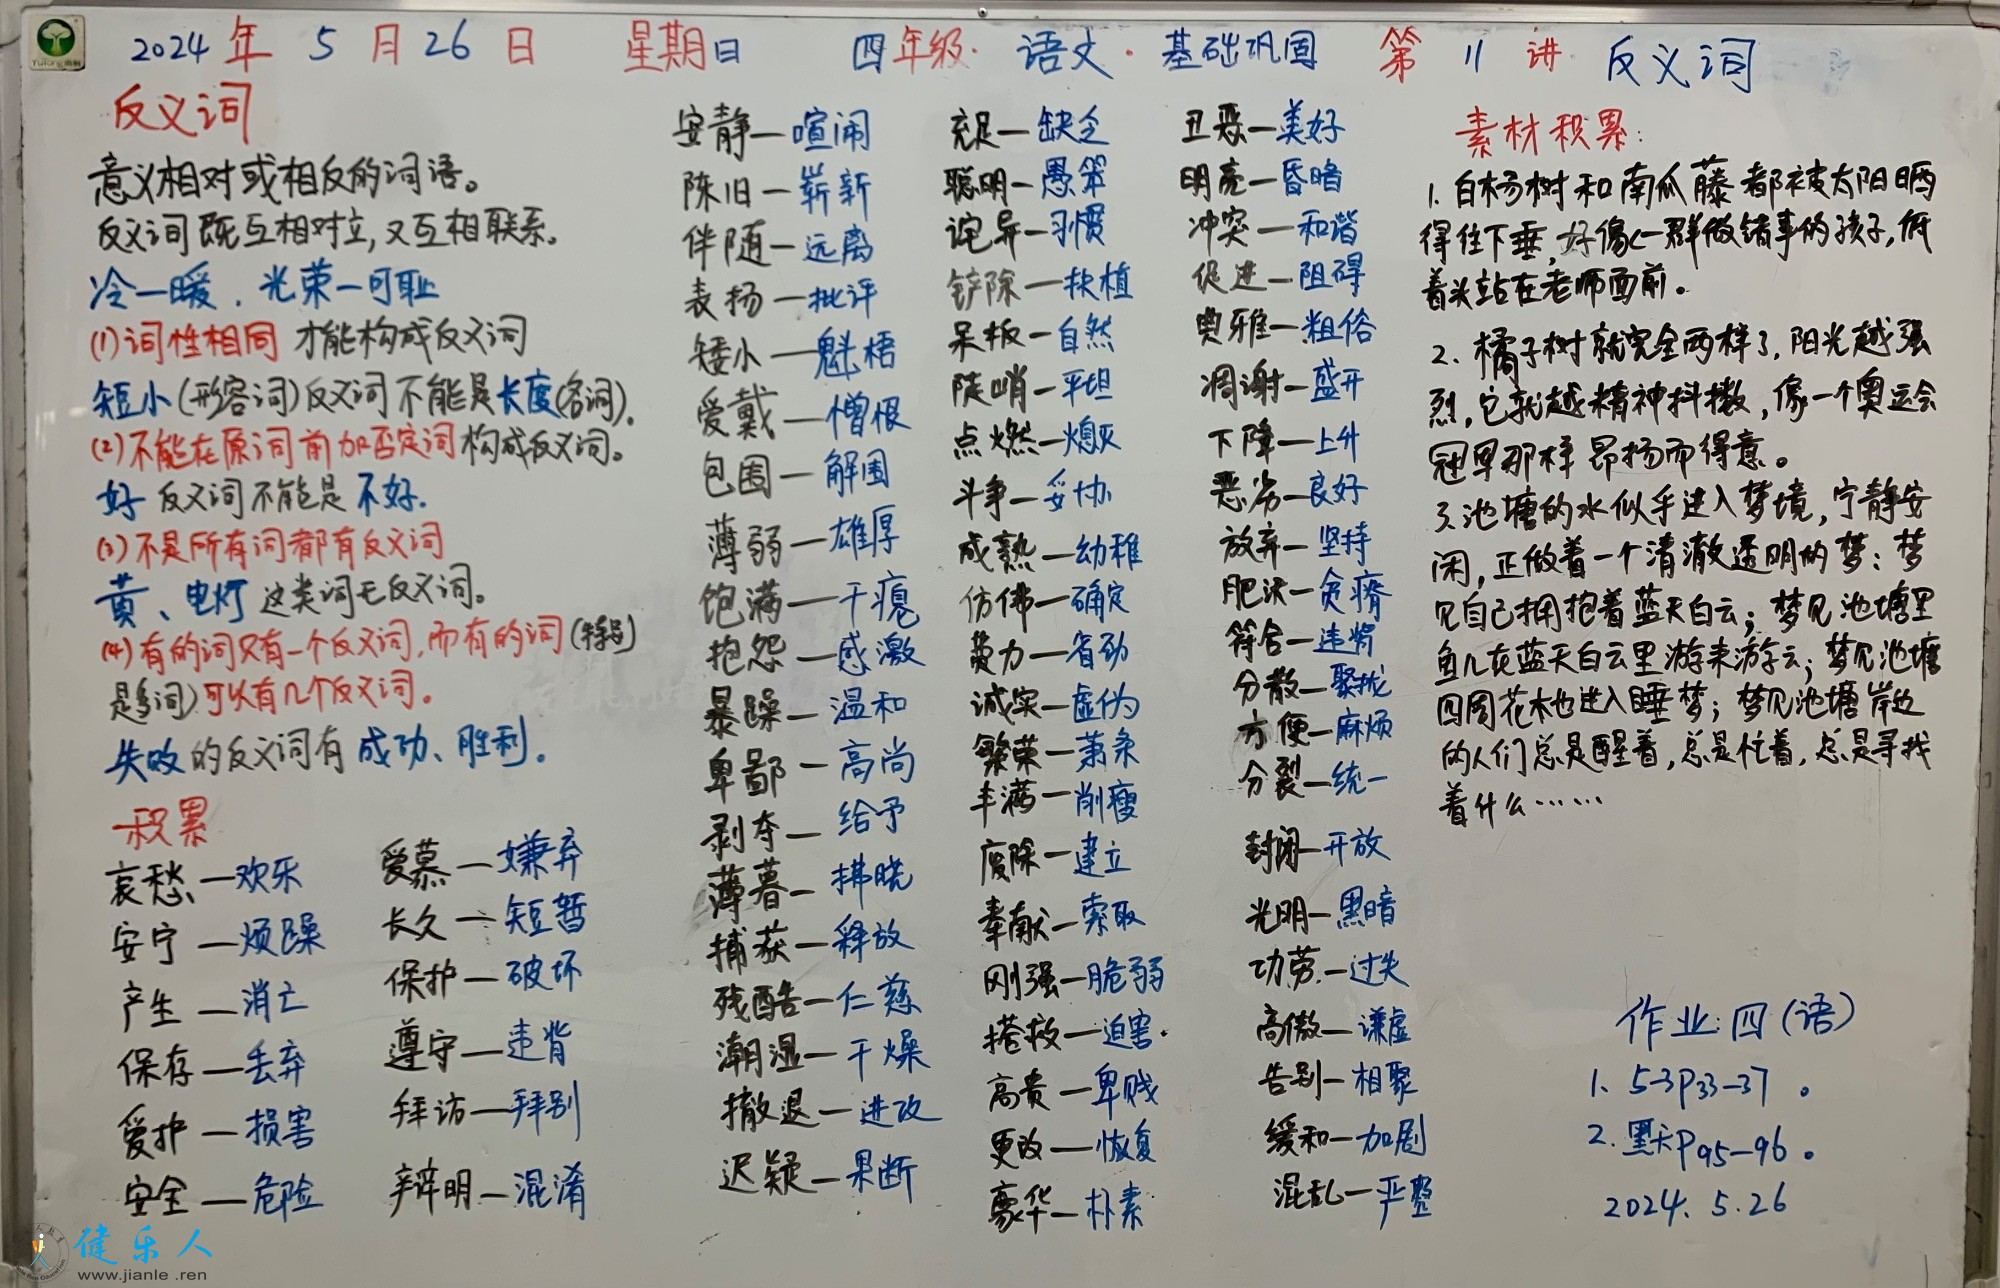 2024年5月26日 星期日 四年级·语文·基础巩固 第11讲 反义词
反义词
意义相对或相反的词语。
反义词既互相对立,又互相联系。
冷—暖、光荣—可耻
(1)词性相同 才能构成反义词
短小(形容词)反义词不能是长度(名词).
(2)不能在原词前加否定词构成反义词。
好 反义词不能是 不好.
(3)不是所有词都有反义词
黄、电灯 这类词无反义词。
(4)有的词只有一个反义词,而有的词(特别
是多词)可以有几个反义词。
失败的反义词有 成功、胜利.
积累
哀愁—欢乐
安宁—烦躁
产生—消亡
保存—丢弃
爱护—损害
安全—危险
爱慕—嫌弃
长久—短暂
保护—破坏
遵守—违背
拜访—拜别
辩明—混淆
安静—喧闹
陈旧—崭新
伴随—远离
表扬—批评
矮小—魁梧
爱戴—憎恨
包围—解围
薄弱—雄厚
饱满—干瘪
抱怨—感激
暴躁—温和
卑鄙—高尚
剥夺—给予
薄暮—拂晓
捕获—释放
残酷—仁慈
潮湿—干燥
撤退—进攻
迟疑—果断
充足—缺乏
聪明—愚笨
诧异—习惯
铲除—扶植
呆板—自然
陡峭—平坦
点燃—熄灭
斗争—妥协
成熟—幼稚
仿佛—确定
费力—省劲
诚实—虚伪
繁荣—萧条
丰满—削瘦
废除—建立
奉献—索取
刚强—脆弱
搭救—迫害.
高贵—卑贱
更改—恢复
豪华—朴素
丑恶—美好
明亮—昏暗
冲突—和谐
促进—阻碍
典雅—粗俗
凋谢—盛开
下降—上升
恶劣—良好
放弃—坚持
肥沃—贫瘠
符合—违背
分散—聚拢
方便—麻烦
分裂—统一
封闭—开放
光明—黑暗
功劳—过失
高傲—谦虚
告别—相聚
缓和—加剧
混乱—严整
素材积累:
1. 白杨树和南瓜藤都被太阳晒
得往下垂,好像一群做错事的孩子,低
着头站在老师面前。
2. 橘子树就完全两样了,阳光越强
烈,它就越精神抖擞,像一个奥运会
冠军那样昂扬而得意。
3. 池塘的水似乎进入梦境,宁静安
闲,正做着一个清澈透明的梦:梦
见自己拥抱着蓝天白云;梦见池塘里
鱼儿在蓝天白云里游来游去;梦见池塘
四周花木也进入睡梦;梦见池塘岸边
的人们总是醒着,总是忙着,总是寻找
着什么……
作业:四(语)
1. 53P33—37。
2. 默P95—96。
2024.5.26
健乐人
www.jianle.ren